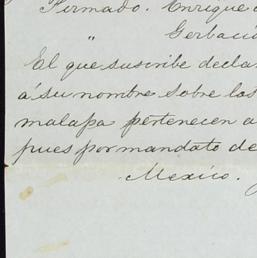 Firmado. Enrique
" Gerbacio
El que suscribe decla
á su nombre sobre los
malapa pertenecen a
pues por mandato de
Mexico.